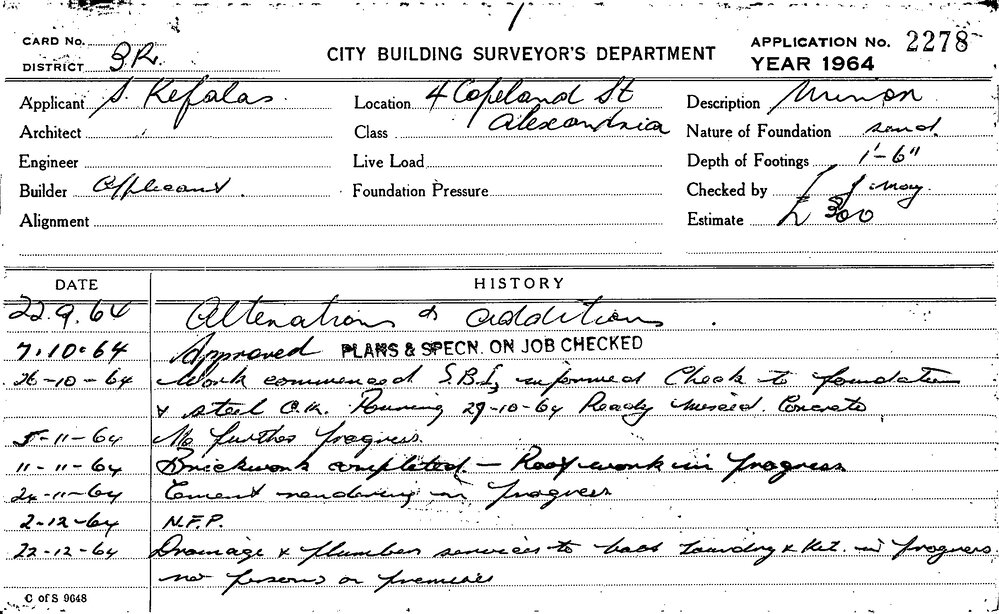 CARD No.
DISTRICT 3R.
CITY BUILDING SURVEYOR'S DEPARTMENT
APPLICATION No. 2278
YEAR 1964
Applicant S. Kefalas.
Location 4 Copeland St
Alexandria
Description Minor
Architect
Class
Nature of Foundation sand.
Engineer
Live Load
Depth of Footings 1'-6"
Builder Applicant.
Foundation Pressure
Checked by
Alignment
Estimate £ 300
DATE
HISTORY
22.9.64 Alterations & additions.
7.10.64 Approved PLANS & SPECN. ON JOB CHECKED
26-10-64 Work commenced S.B.I. informed Check to foundation
& steel O.K. Pouring 29-10-64 Ready mixed. Concrete
5-11-64 No further progress.
11-11-64 Brickwork completed. - Roof work in progress
24-11-64 Cement rendering in progress
2-12-64 N.F.P.
22-12-64 Drainage & plumbers services to bath laundry & kit. in progress
no persons on premises
C of S 9648